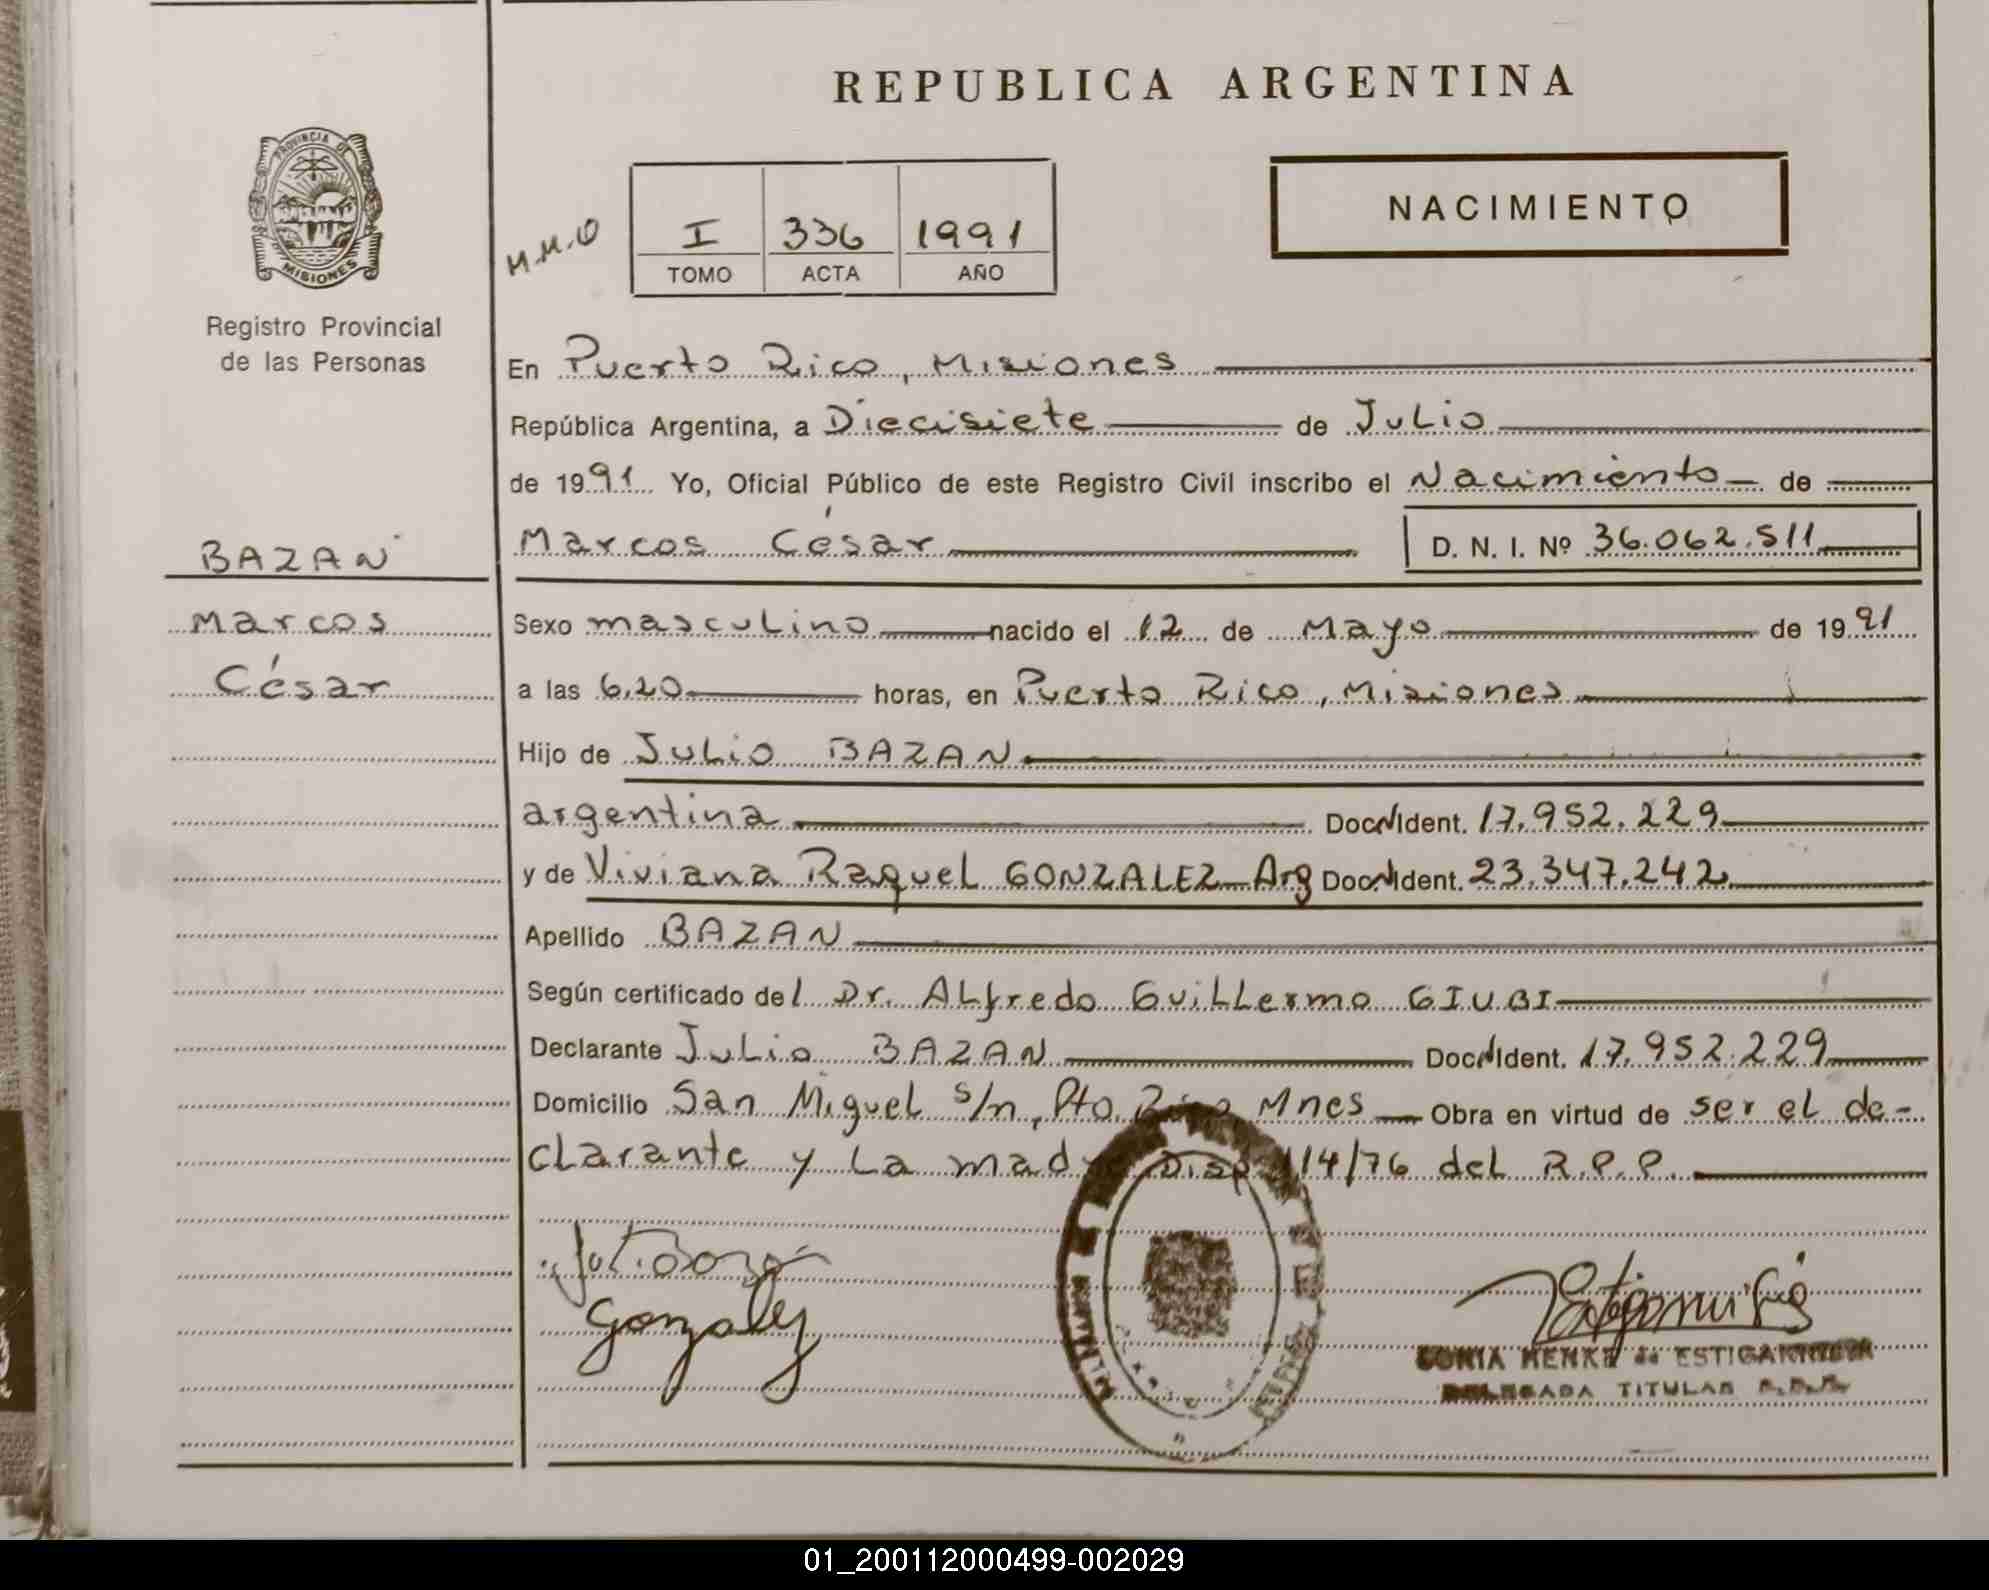 REPUBLICA ARGENTINA
PROVINCIA DE
MISIONES
Registro Provincial
de las Personas
M.M.O
I 336 1991
TOMO ACTA AÑO
NACIMIENTO
En Puerto Rico, Misiones
República Argentina, a Diecisiete de Julio
de 1991 Yo, Oficial Público de este Registro Civil inscribo el Nacimiento de
BAZAN
Marcos César D. N. I. Nº 36.062.511
Marcos
Sexo masculino nacido el 12 de Mayo de 1991
César
a las 6,20 horas, en Puerto Rico, Misiones
Hijo de Julio BAZAN
argentina Doc. Ident. 17.952.229
y de Viviana Raquel GONZALEZ Arg Doc. Ident. 23.347.242
Apellido BAZAN
Según certificado del Dr. Alfredo Guillermo GIUBI
Declarante Julio BAZAN Doc. Ident. 17.952.229
Domicilio San Miguel s/n, Pto. Rico Mnes Obra en virtud de ser el de-
clarante y La madre Disp 114/76 del R.P.P.
Gonzalez
SONIA HENKE de ESTIGARRIBIA
DELEGADA TITULAR
01_200112000499-002029